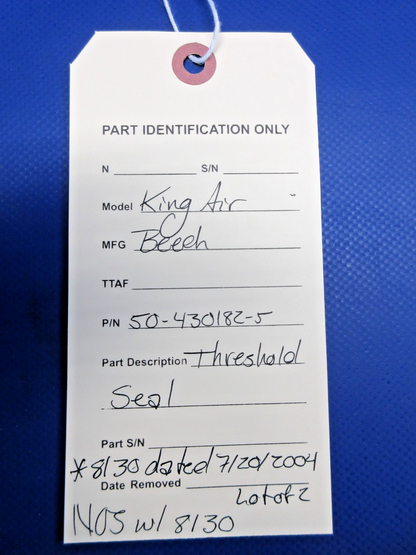 PART IDENTIFICATION ONLY
N S/N
Model King Air
MFG Beech
TTAF
P/N 50-430182-5
Part Description Threshold
Seal
Part S/N
* 8130 dated 7/20/2004
Date Removed
Lot of 2
NOS w/ 8130